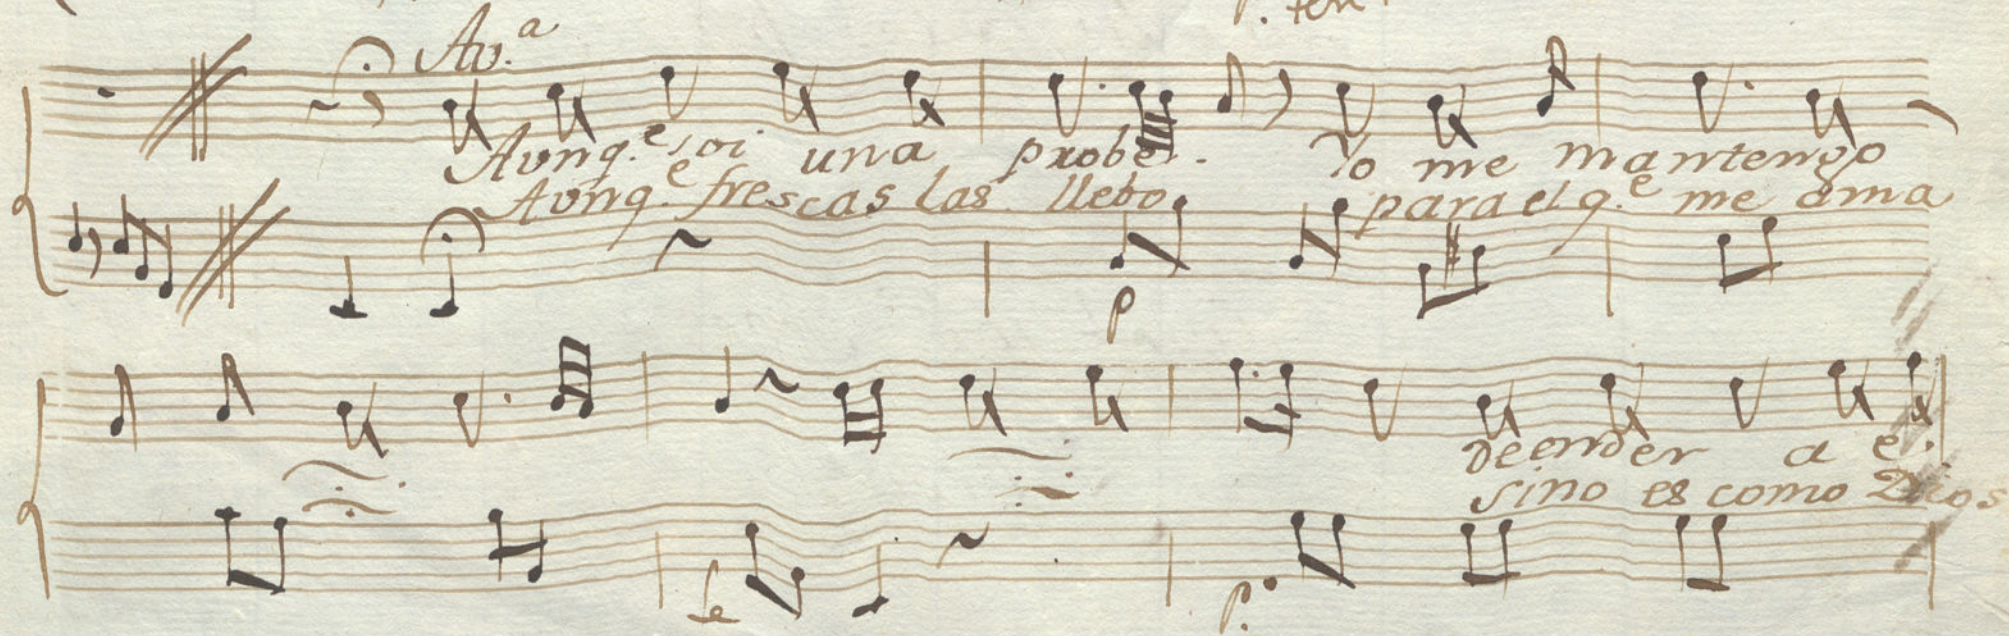 p. ten
Av.ª
Avnq.e soi una probe. Yo me mantengo
Avnq.e frescas las llebo para el q.e me ama
p
de ender a e.
sino es como Dios
fe
p.